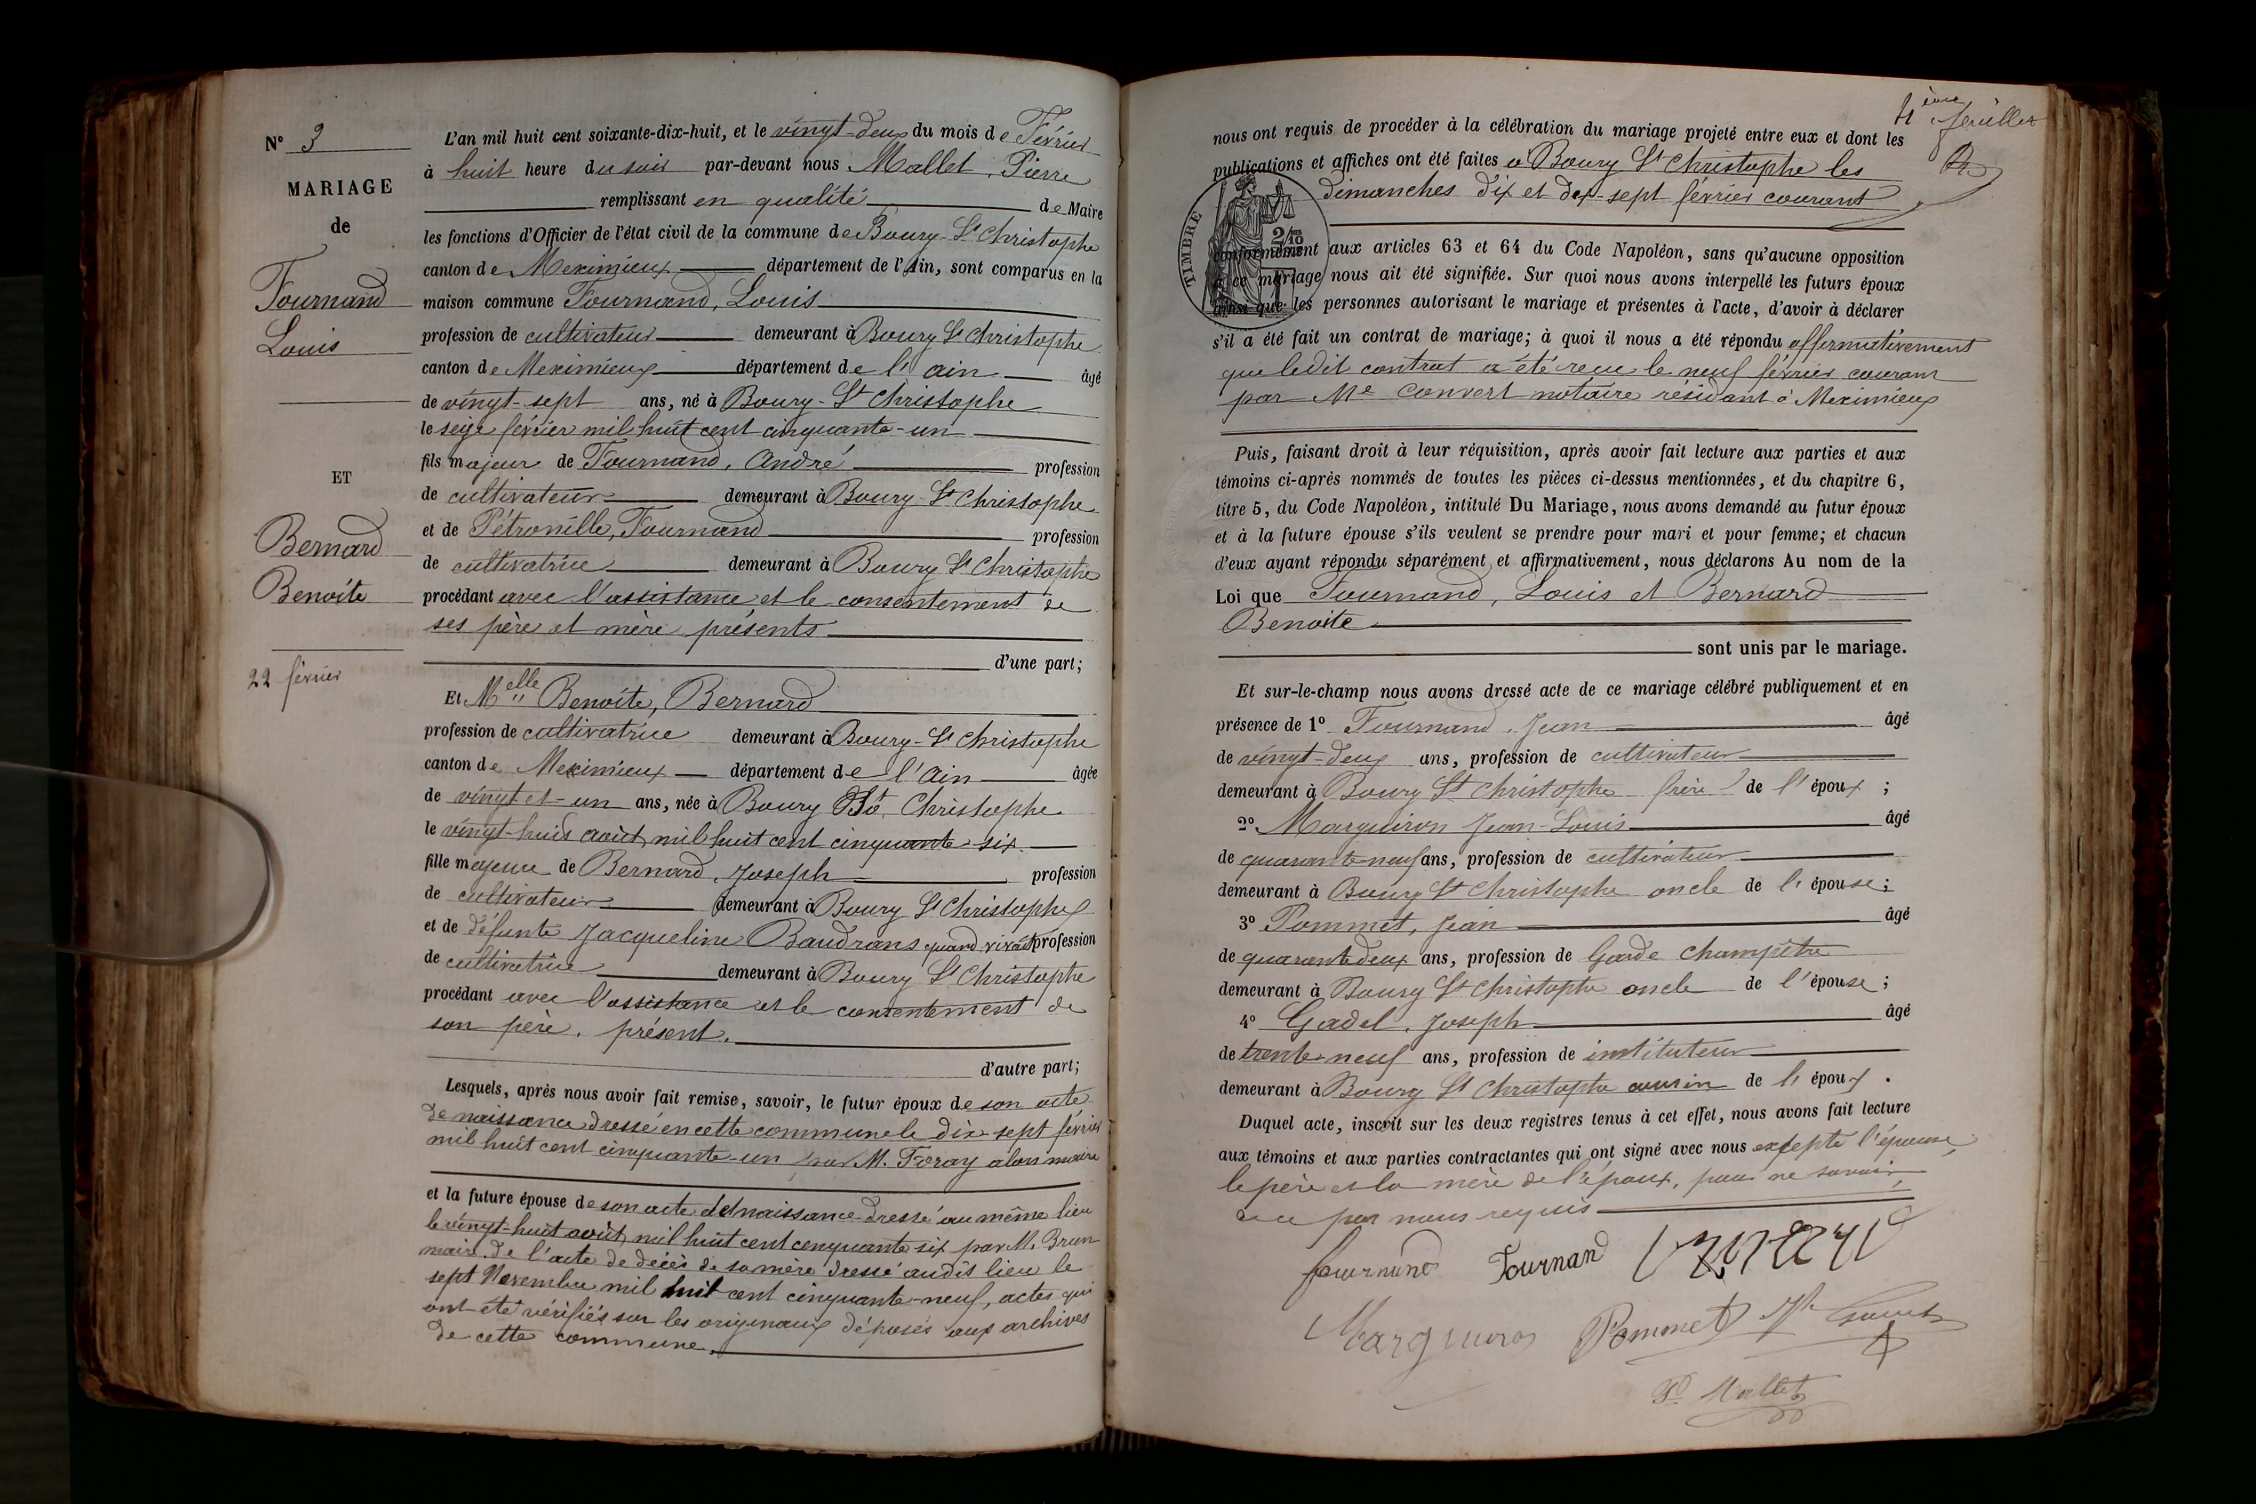 N° 3
MARIAGE
de
Fournand
Louis
ET
Bernard
Benoite
22 février
L'an mil huit cent soixante-dix-huit, et le vingt-deux du mois de Février
à huit heure du soir par-devant nous Mallet, Pierre
remplissant en qualité de Maire
les fonctions d'Officier de l'état civil de la commune de Bourg-St Christophe
canton de Meximieux département de l'Ain, sont comparus en la
maison commune Fournand, Louis
profession de cultivateur demeurant à Bourg St Christophe
canton de Meximieux département de l'ain âgé
de vingt-sept ans, né à Bourg-St Christophe
le seize février mil huit cent cinquante-un
fils majeur de Fournand, André profession
de cultivateur demeurant à Bourg-St Christophe
et de Pétronille, Fournand profession
de cultivatrice demeurant à Bourg St Christophe
procédant avec l'assistance et le consentement de
ses père et mère présents
d'une part;
Et Melle Benoite, Bernard
profession de cultivatrice demeurant à Bourg-St Christophe
canton de Meximieux département de l'ain âgée
de vingt et-un ans, née à Bourg St Christophe
le vingt-huit août mil huit cent cinquante six
fille majeure de Bernard, Joseph profession
de cultivateur demeurant à Bourg St Christophe
et de défunte Jacqueline Baudrans quand vivait profession
de cultivatrice demeurant à Bourg St Christophe
procédant avec l'assistance et le consentement de
son père, présent.
d'autre part;
Lesquels, après nous avoir fait remise, savoir, le futur époux de son acte
de naissance dressé en cette commune le dix-sept février
mil huit cent cinquante-un par M. Feray alors maire
et la future épouse de son acte de naissance dressé au même lieu
le vingt-huit août mil huit cent cinquante six par M. Brun
maire. de l'acte de décès de sa mère dressé audit lieu le
sept Novembre mil huit cent cinquante-neuf, actes qui
ont été vérifiés sur les originaux déposés aux archives
de cette commune.
4ème feuillet
nous ont requis de procéder à la célébration du mariage projeté entre eux et dont les
publications et affiches ont été faites à Bourg St Christophe les
dimanches dix et dix-sept février courant
TIMBRE
2/10
conformément aux articles 63 et 64 du Code Napoléon, sans qu'aucune opposition
à ce mariage nous ait été signifiée. Sur quoi nous avons interpellé les futurs époux
ainsi que les personnes autorisant le mariage et présentes à l'acte, d'avoir à déclarer
s'il a été fait un contrat de mariage; à quoi il nous a été répondu affirmativement
que ledit contrat a été reçu le neuf février courant
par Me Convert notaire résidant à Meximieux
Puis, faisant droit à leur réquisition, après avoir fait lecture aux parties et aux
témoins ci-après nommés de toutes les pièces ci-dessus mentionnées, et du chapitre 6,
titre 5, du Code Napoléon, intitulé Du Mariage, nous avons demandé au futur époux
et à la future épouse s'ils veulent se prendre pour mari et pour femme; et chacun
d'eux ayant répondu séparément et affirmativement, nous déclarons Au nom de la
Loi que Fournand, Louis et Bernard
Benoite
sont unis par le mariage.
Et sur-le-champ nous avons dressé acte de ce mariage célébré publiquement et en
présence de 1° Fournand, Jean âgé
de vingt-deux ans, profession de cultivateur
demeurant à Bourg St Christophe frère de l'époux ;
2° Marguiron Jean-Louis âgé
de quarante neuf ans, profession de cultivateur
demeurant à Bourg St Christophe oncle de l'épouse;
3° Pommet, Jean âgé
de quarante deux ans, profession de Garde champêtre
demeurant à Bourg St Christophe oncle de l'épouse;
4° Gadel, Joseph âgé
de trente-neuf ans, profession de instituteur
demeurant à Bourg St Christophe cousin de l'époux.
Duquel acte, inscrit sur les deux registres tenus à cet effet, nous avons fait lecture
aux témoins et aux parties contractantes qui ont signé avec nous excepté l'épouse,
le père et la mère de l'époux, pour ne savoir,
de ce par nous requis
fournand Fournand
Marguiron Pommet
P. Mallet